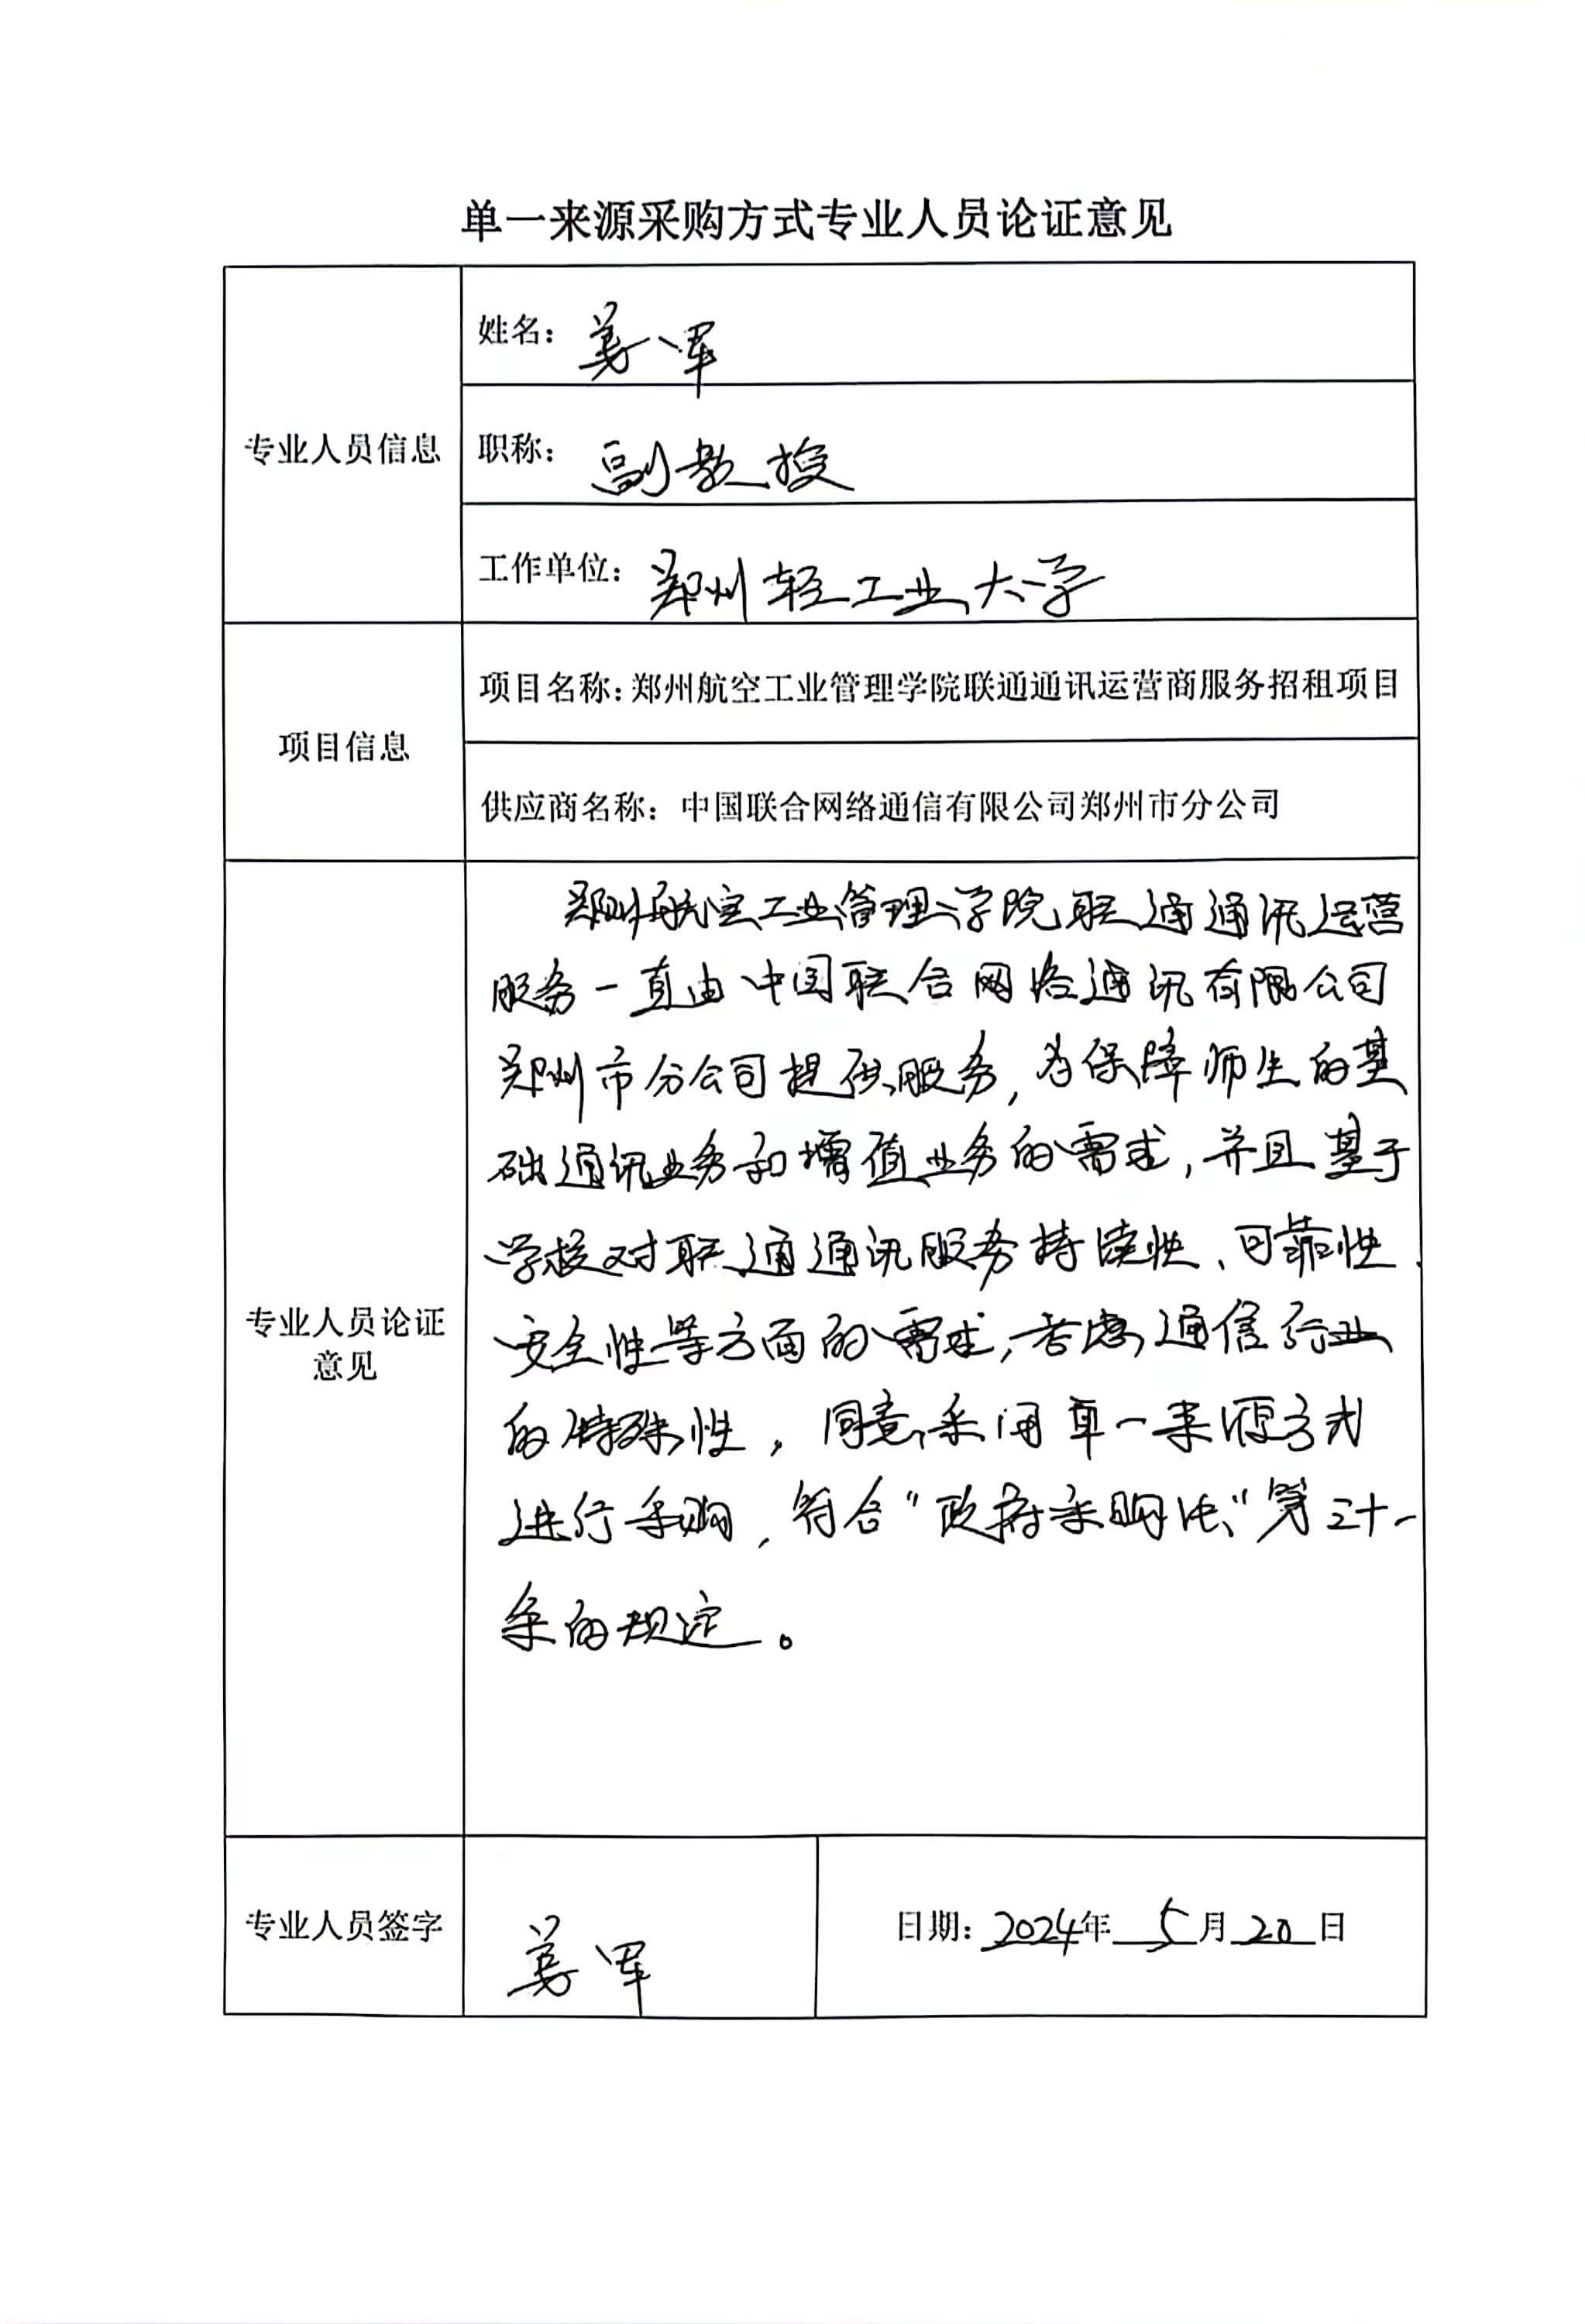 单一来源采购方式专业人员论证意见
专业人员信息
姓名：姜军
职称：副教授
工作单位：郑州轻工业大学
项目信息
项目名称：郑州航空工业管理学院联通通讯运营商服务招租项目
供应商名称：中国联合网络通信有限公司郑州市分公司
专业人员论证
意见
郑州航空工业管理学院联通通讯运营
服务一直由中国联合网络通讯有限公司
郑州市分公司提供服务，为保障师生的基
础通讯业务和增值业务的需求，并且基于
学校对联通通讯服务持续性、可靠性、
安全性等方面的需求，考虑通信行业
的特殊性，同意采用单一来源方式
进行采购，符合“政府采购法”第三十一
条的规定。
专业人员签字
姜军
日期：2024年 5月20日